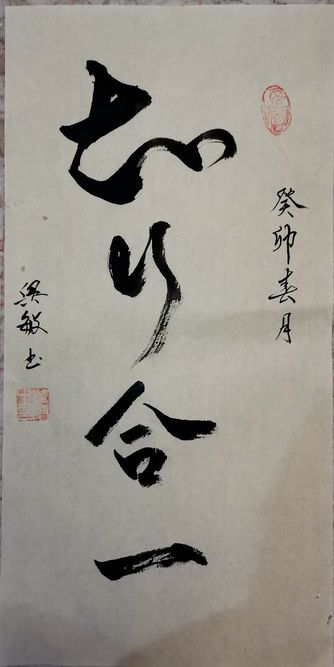 癸卯春月
知行合一
敏书